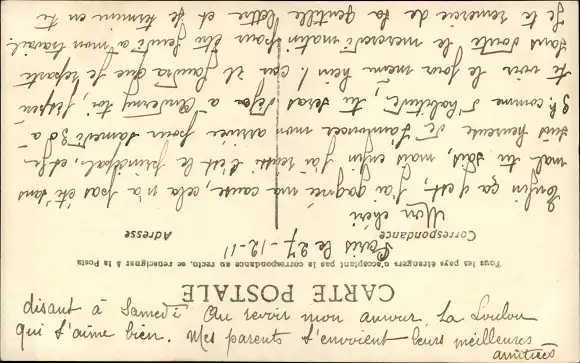 CARTE POSTALE
Tous les pays étrangers n'acceptant pas la correspondance au recto, se renseigner à la Poste
Correspondance
Adresse
Paris le 27-12-11
Mon chéri
Enfin ça y est, j'ai gagné ma cause, cela n'a pas été sans
mal tu sais, mais enfin j'ai réussi c'est le principal, et je
suis heureuse de t'annoncer mon arrivée pour samedi 30 à
9h comme d'habitude, tu seras déjà à j'espère
te voir le jour même hein! car il faudra que je reparte
sans doute le mercredi matin pour être jeudi à mon travail.
Je te remercie de ta gentille lettre et je termine en te
disant à Samedi. Au revoir mon amour. Ta Loulou
qui t'aime bien. Mes parents t'envoient leurs meilleures
amitiés